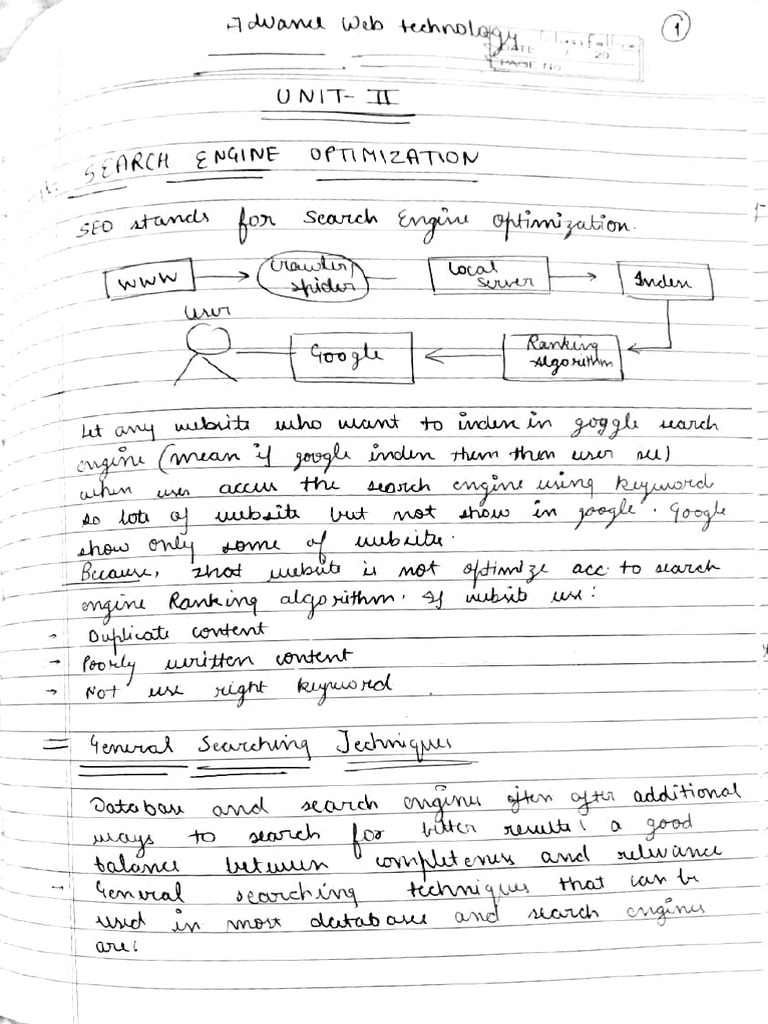 Advance Web technology
1
Classfellow
DATE / / 20
PAGE No.
UNIT-II
SEARCH ENGINE OPTIMIZATION
SEO stands for Search Engine Optimization.
WWW
Crawler/
spider
Local
Server
Index
User
Google
Ranking
Algorithm
Let any website who want to index in goggle search
engine (mean if google index them then user see)
when user access the search engine using keyword
so lots of website but not show in google. Google
show only some of website.
Because, that website is not optimize acc. to search
engine Ranking algorithm. If website use:
→ Duplicate content
→ Poorly written content
→ Not use right keyword
= General Searching Techniques
Database and search engines often offer additional
ways to search for better results: a good
balance between completeness and relevance
- General searching techniques that can be
used in most database and search engines
are: